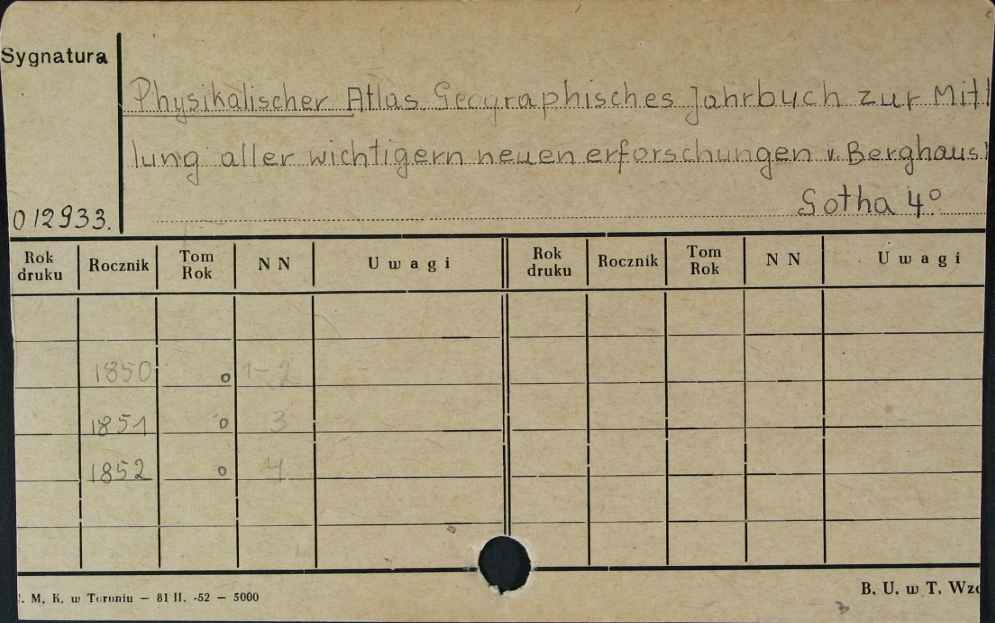 Sygnatura
Physikalischer Atlas. Geographisches Jahrbuch zur Mit
lung aller wichtigern neuen erforschungen v. Berghaus
Gotha 4°
012933.
Rok druku Rocznik Tom Rok NN Uwagi Rok druku Rocznik Tom Rok NN Uwagi
1850 o 1-2
1851 o 3
1852 o 4
. M. K. w Toruniu — 81 II. -52 — 5000
B. U. w T. Wzo
3